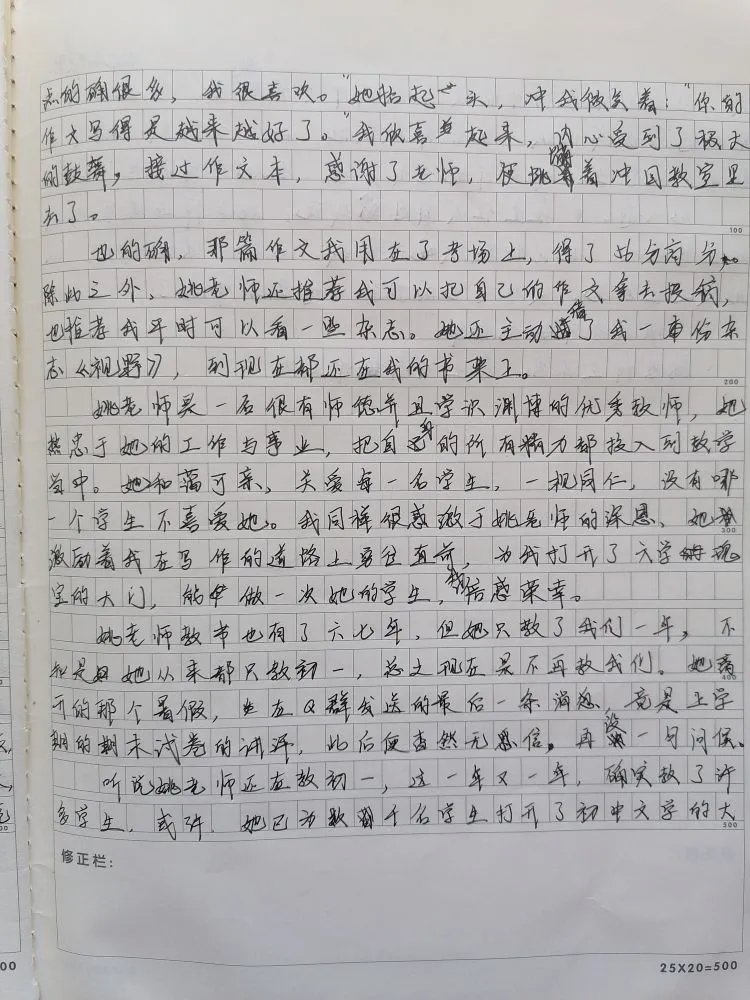 点的确很多，我很喜欢。"她抬起一头，冲我微笑着："你的
作文写得是越来越好了。"我欣喜起来，内心受到了极大
的鼓舞，接过作文本，感谢了老师，便蹦跳着冲回教室里
去了。
100
也的确，那篇作文我用在了考场上，得了56分高分。
除此之外，姚老师还推荐我可以把自己的作文拿去投稿，
也推荐我平时可以看一些杂志。她还主动借了我一本份杂
志《视野》，到现在都还在我的书架上。
200
姚老师是一名很有师德并且学识渊博的优秀教师，她
热忠于她的工作与事业，把自身的所有精力都投入到教学
当中。她和蔼可亲，关爱每一名学生，一视同仁，没有哪
一个学生不喜爱她。我同样很感激于姚老师的深恩，她
300
激励着我在写作的道路上勇往直前，为我打开了文学瑰
宝的大门，能做一次她的学生，我倍感荣幸。
姚老师教书也有了六七年，但她只教了我们一年，不
知是她从来都只教初一，总之现在是不再教我们。她离
400
开的那个暑假，在Q群发送的最后一条消息，竟是上学
期的期末试卷的讲评，此后便杳然无信，再没一句问候。
听说姚老师还在教初一，这一年又一年，确实教了许
多学生，或许，她已为数千名学生打开了初中文学的大
500
修正栏：
00
25X20=500